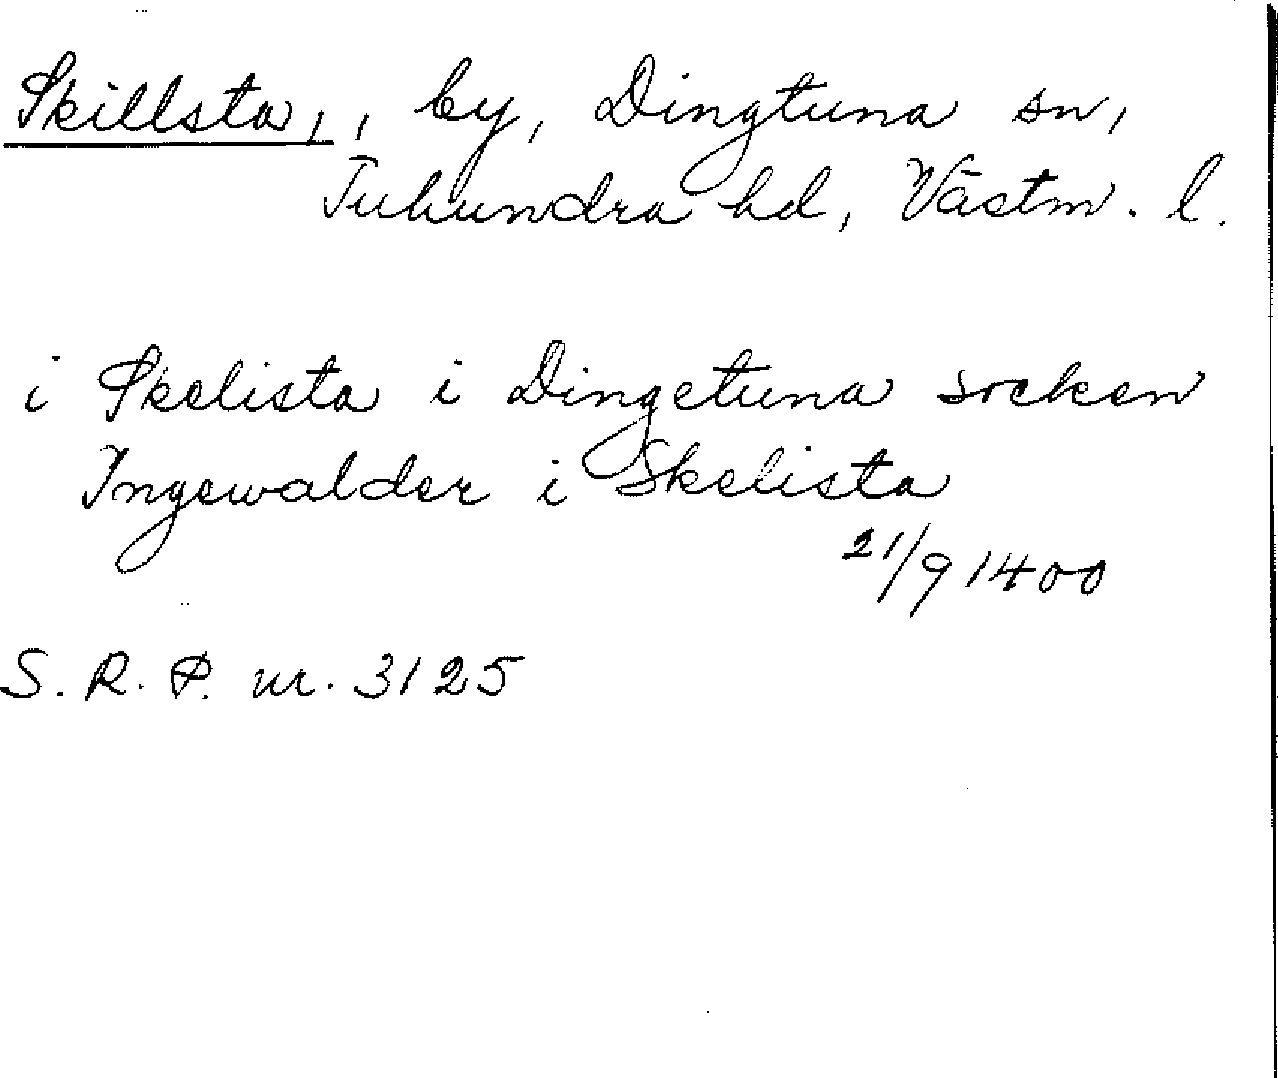 Skillsta, , by, Dingtuna sn,
Tuhundra hd, Västm. l.
i Skelista i Dingetuna socken
Ingewalder i Skelista
21/9 1400
S. R. P. nr. 3125